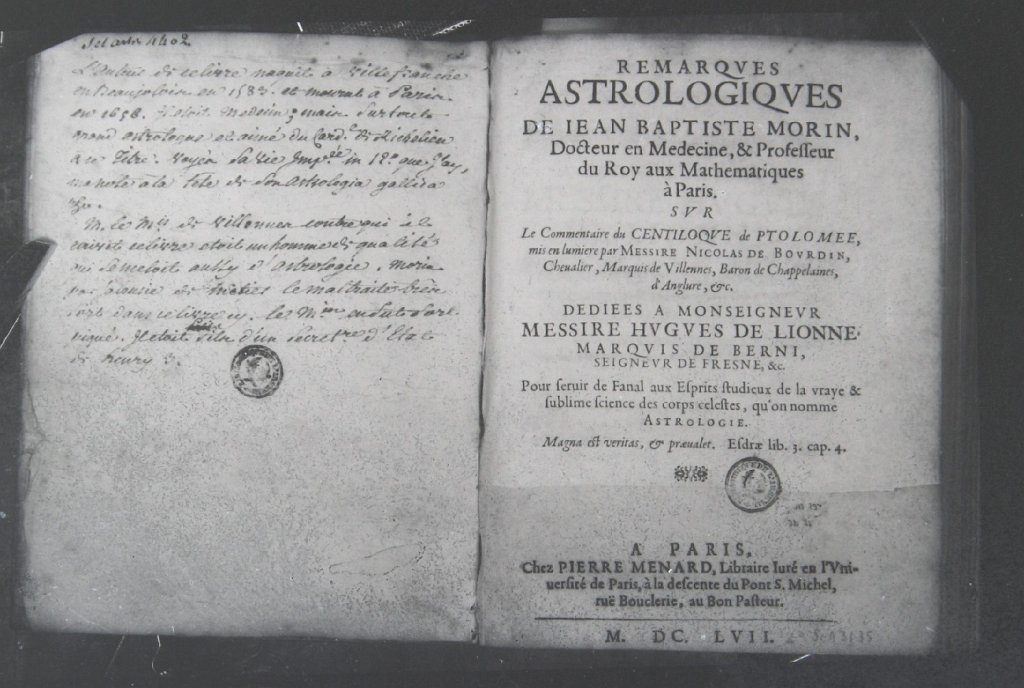 Sct arts 4402
L'auteur de ce livre naquit à Villefranche
en Beaujolois en 1583. et mourut à Paris
en 1656. il étoit medecin; mais surtout
grand astrologue et aimé du Card. de Richelieu
à ce Titre. voyez sa vie in 12.º que j'ay
à la Tete de son Astrologia gallica
M. le Mis de Villennes contre qui à
livre etoit un homme de qualité
qui se meloit aussy d'astrologie. Morin
par jalousie de metier le maltraite bien
fort dans ce livre cy.
Il étoit fils d'un Secret.re d'Etat
de henry 3.
REMARQVES
ASTROLOGIQVES
DE IEAN BAPTISTE MORIN,
Docteur en Medecine, & Professeur
du Roy aux Mathematiques
à Paris.
SVR
Le Commentaire du CENTILOQVE de PTOLOMEE,
mis en lumiere par MESSIRE NICOLAS DE BOVRDIN,
Cheualier, Marquis de Villennes, Baron de Chappelaines,
d'Anglure, &c.
DEDIEES A MONSEIGNEVR
MESSIRE HVGVES DE LIONNE,
MARQVIS DE BERNI,
SEIGNEVR DE FRESNE, &c.
Pour seruir de Fanal aux Esprits studieux de la vraye &
sublime science des corps celestes, qu'on nomme
ASTROLOGIE.
Magna est veritas, & præualet. Esdræ lib. 3. cap. 4.
A PARIS,
Chez PIERRE MENARD, Libraire Iuré en l'Vni-
uersité de Paris, à la descente du Pont S. Michel,
ruë Bouclerie, au Bon Pasteur.
M. DC. LVII.